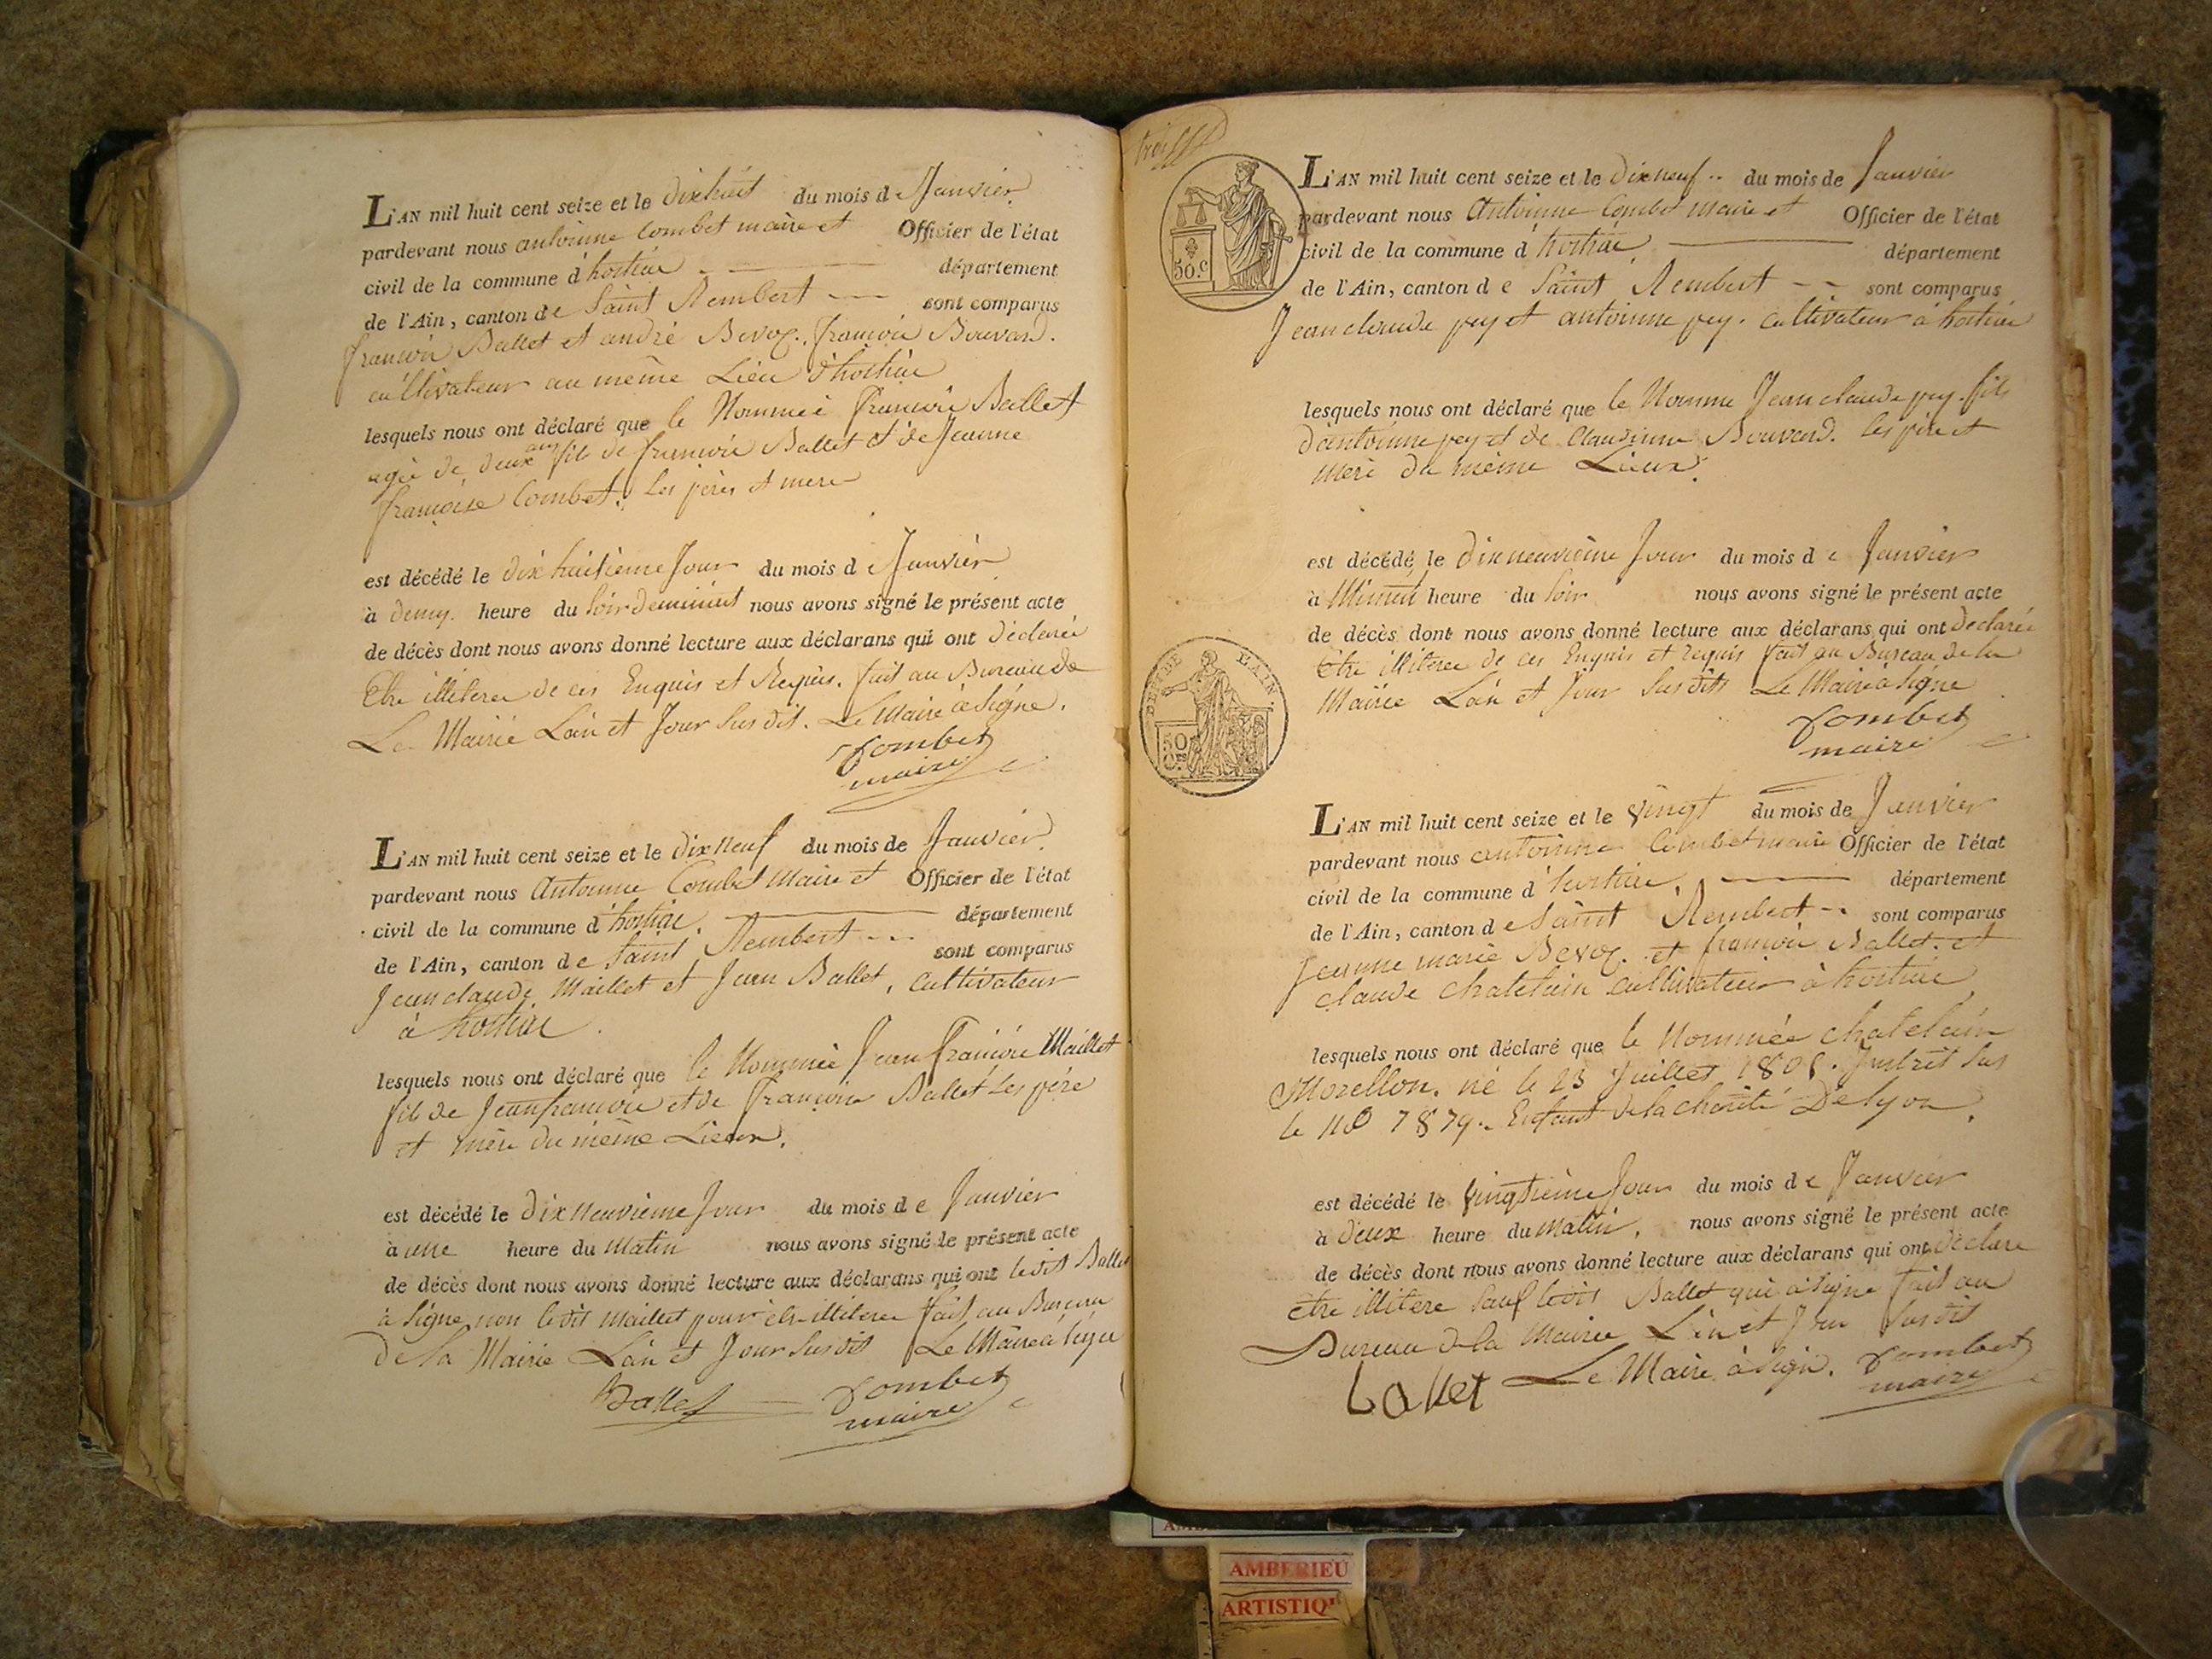 L'AN mil huit cent seize et le dixhuit du mois de Janvier
pardevant nous antoinne Combet maire et Officier de l'état
civil de la commune d'hostiac département
de l'Ain, canton de Saint Rembert sont comparus
francois Ballet et andré Bevoz. francois Bouvand.
cultivateur au même Lieu d'hostiac
lesquels nous ont déclaré que le Nommée francois Ballet
agée de deux ans fils de francois Ballet et de Jeanne
francoise Combet. Les pères et mere
est décédé le dixhuitieme Jour du mois de Janvier
à demy heure du soir deminuit nous avons signé le présent acte
de décès dont nous avons donné lecture aux déclarans qui ont déclarée
Etre illiteree de ces Enquis et Requis. fait au Bureau de
La Mairie Lan et Jour susdit. Le Maire à signé.
Combet
maire
L'AN mil huit cent seize et le dix neuf du mois de Janvier
pardevant nous Antoinne Combet Maire et Officier de l'état
civil de la commune d'hostiac. département
de l'Ain, canton de Saint Rembert sont comparus
Jean claude Maillet et Jean Ballet, cultivateur
à hostiac
lesquels nous ont déclaré que le Nommée Jean francois Maillet
fils de Jean francois et de francoise Ballet Les père
et mère du même Lieux.
est décédé le dix neuvieme Jour du mois de Janvier
à une heure du matin nous avons signé le présent acte
de décès dont nous avons donné lecture aux déclarans qui ont ledit Ballet
à signe non ledit maillet pour etre illiteree fait au Bureau
De la Mairie Lan et Jour susdit Le Maire à signe
Ballet Combet
maire
trois
50.c
L'AN mil huit cent seize et le dix neuf du mois de Janvier
pardevant nous Antoinne Combet Maire et Officier de l'état
civil de la commune d'hostiac. département
de l'Ain, canton de Saint Rembert sont comparus
Jean claude pey et antoinne pey. cultivateur à hostiac
lesquels nous ont déclaré que le Nomme Jean claude pey. fils
d'antoinne pey et de Claudinne Bouvand. les père et
mere du même Lieux.
est décédé le dix neuvieme Jour du mois de Janvier
à Minuit heure du soir nous avons signé le présent acte
de décès dont nous avons donné lecture aux déclarans qui ont declarée
Etre illiteree de ces Enquis et requis fait au Bureau de la
Mairie Lan et Jour susdits Le Maire à signe
Combet
maire
DEP. DE L'AIN.
50
C.
L'AN mil huit cent seize et le vingt du mois de Janvier
pardevant nous antoinne Combet maire Officier de l'état
civil de la commune d'hostiac. département
de l'Ain, canton de Saint Rembert sont comparus
Jeanne marie Bevoz. et francois Ballet. et
claude chatelain cultivateur à hostiac
lesquels nous ont déclaré que le Nommée chatelain
Morellon. né le 23 Juillet Jnscrit sus
le no 7879. Enfant de la charité De lyon.
est décédé le vingtieme Jour du mois de Janvier
à deux heure du matin. nous avons signé le présent acte
de décès dont nous avons donné lecture aux déclarans qui ont declare
etre illitere sauf ledit Ballet qui à signe fait au
Bureau de la Mairie Lan et Jour susdit
Le Maire à signe. Combet
maire
ballet
AMBERIEU
ARTISTIQ